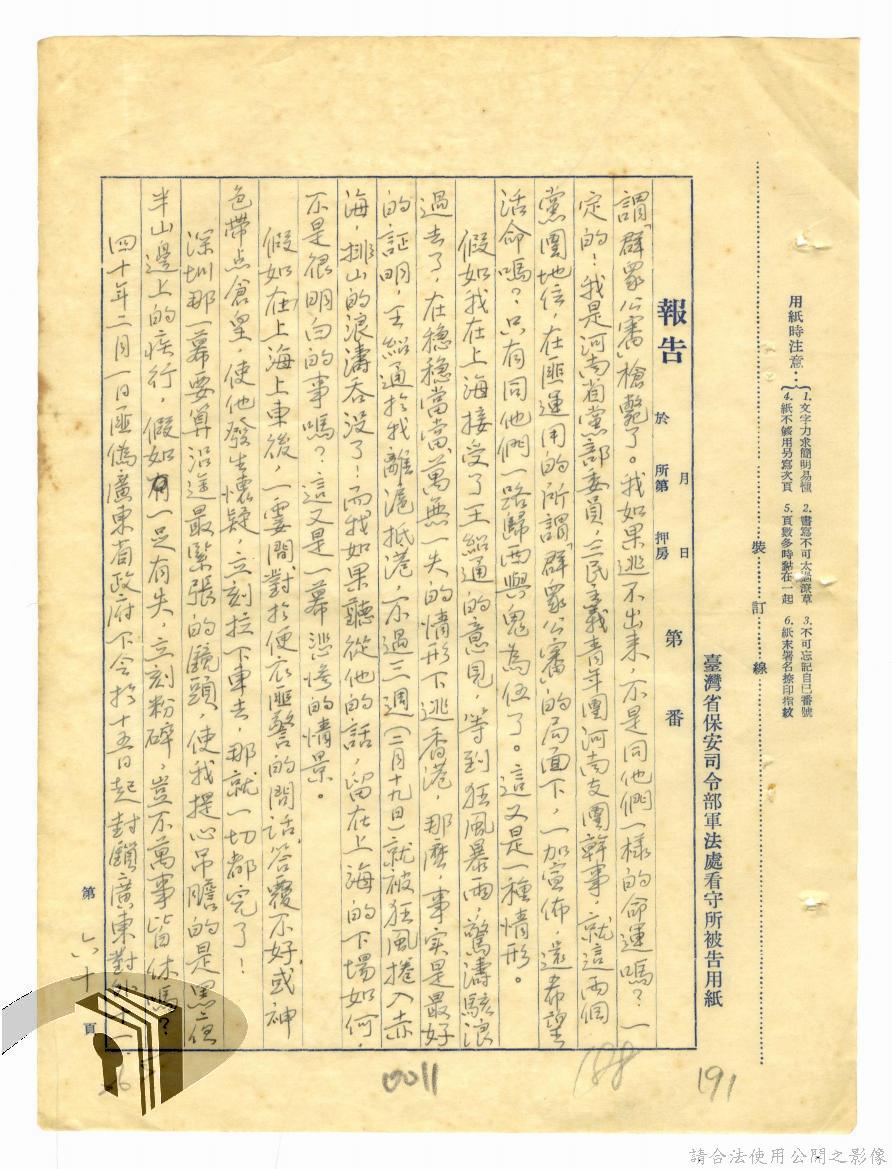 用紙時注意：
1.文字力求簡明易懂 2.書寫不可太過潦草 3.不可忘記自已番號
4.紙不够用另寫次頁 5.頁數多時黏在一起 6.紙末署名捺印指紋
裝訂線
臺灣省保安司令部軍法處看守所被告用紙
報告
於 月 日
所第 押房
第 番
謂「群眾公審」槍斃了。我如果逃不出來，不是同他們一樣的命運嗎？一
定的！我是河南省黨部委員，三民主義青年團河南支團幹事，就這兩個
黨團地位，在匪運用的所謂「群眾公審」的局面下，一加宣佈，還希望
活命嗎？只有同他們一路歸西與鬼為伍了。這又是一種情形。
假如我在上海接受了王紹通的意見，等到狂風暴雨，驚濤駭浪
過去了，在穩穩當當萬無一失的情形下逃香港，那麼，事实是最好
的証明，王紹通於我離滬抵港，不過三週（二月十九日）就被狂風捲入赤
海，排山的浪濤吞沒了！而我如果聽從他的話，留在上海的下場如何，
不是很明白的事嗎？這又是一幕悲慘的情景。
假如在上海上車後，一霎間對於便衣匪警的問話答覆不好或神
色帶点倉皇，使他發生懷疑，立刻拉下車去，那就一切都完了！
深圳那一幕要算沿途最緊張的鏡頭，使我提心吊膽的是黑夜
半山邊上的疾行，假如有一足有失，立刻粉碎，豈不萬事皆休嗎？
四十年二月一日匪偽廣東省政府下令於十五日起封鎖廣東對外
第 六十 頁
0011
188
191
請合法使用公開之影像